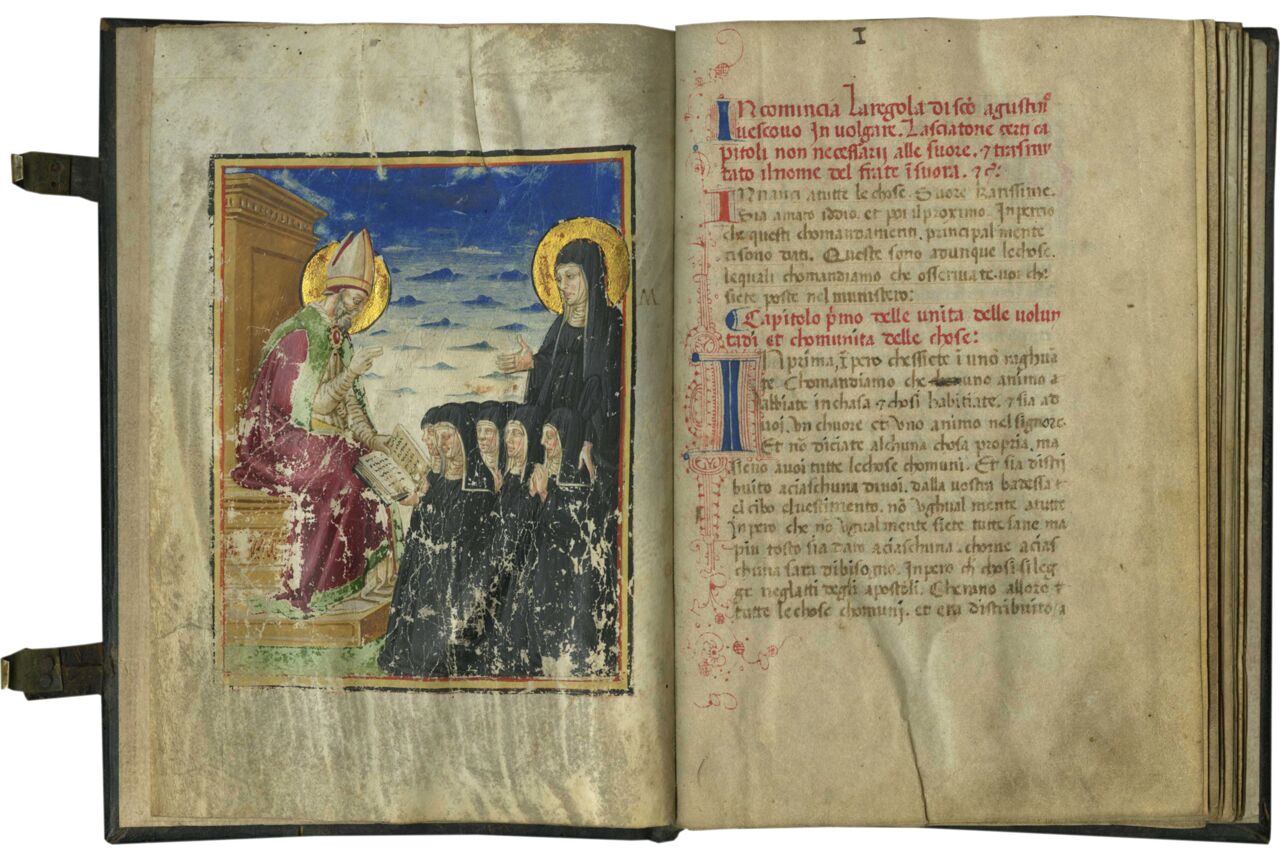 I
M
INcomincia La regola di sc̄o agustin̄
uescouo In uolgare. Lasciatone certi ca
pitoli non necessarii alle suore. ⁊ trasmu
tato il nome del frate ī suora. ⁊c̄:
INnanci a tutte le chose. Suore karissime.
Sia amato iddio. et poi il proximo. Inpercio
che questi chomandamenti. principalmente
ci sono dati. Queste sono adunque le chose.
lequali chomandiamo che osseruiate. uoi che
siete poste nel munistero:
Capitolo p̄mo delle unita delle uolun
tadi et chomunita delle chose:
IN prima, īpero che ssiete ī uno raghuna
te. Chomandiamo che uno animo a
abbiate in chasa ⁊ chosi habitiate. ⁊ sia ad
uoi. vn chuore et uno animo nel signore.
Et nō diciate alchuna chosa propria. ma
sieno a uoi tutte le chose chomuni. Et sia distri
buito a ciaschuna di uoi. dalla vostra badessa ⁊
el cibo el uestimento. nō vghualmente a tutte
Inpero che nō vgualmente siete tutte sane ma
piu tosto sia dato a ciaschuna. chome a cias
chuna sara di bisogno. Inpero ch̄ chosi si leg
ge neglatti degli apostoli. Cherano alloro ⁊
tutte le chose chomuni. et era distribuito a